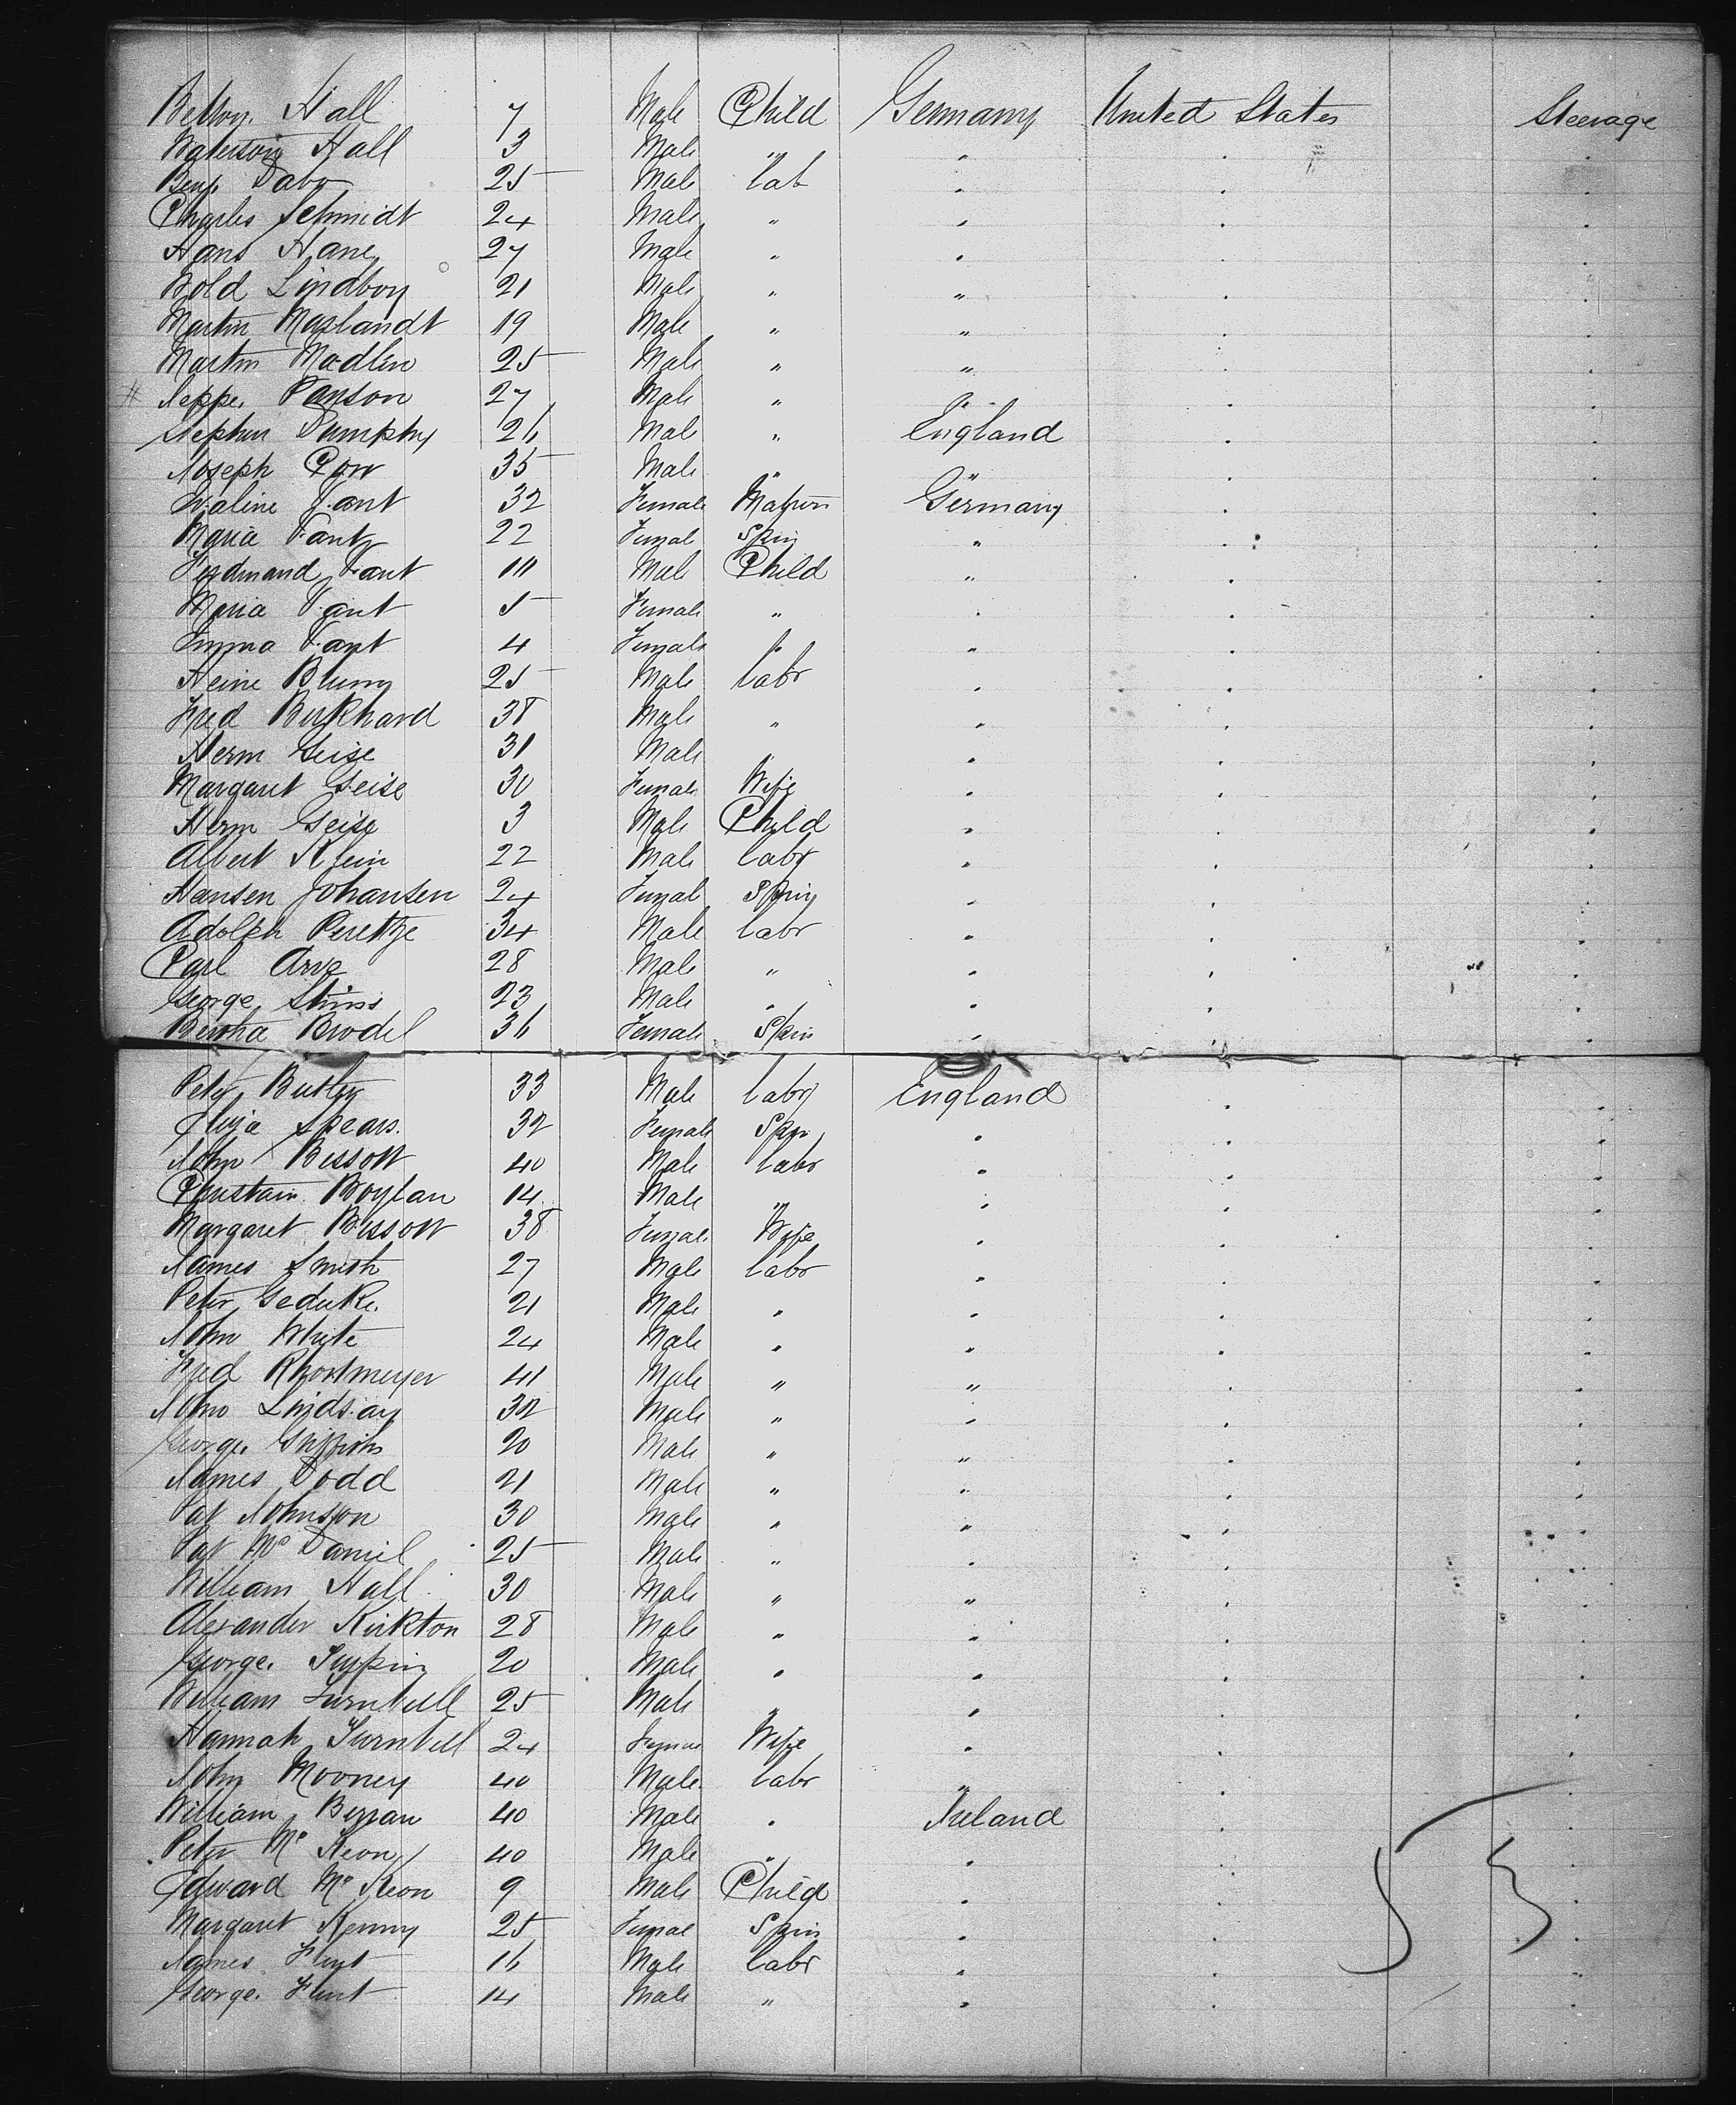 Hall 7 Male Child Germany United States Steerage
Waterson Hall 3 Male " " " "
Benj. Dabo 25 Male lab " " "
Charles Schmidt 24 Male " " " "
Hans Hane 27 Male " " " "
Bold Lindboy 21 Male " " " "
Martin Maslandt 19 Male " " " "
Martin Modlin 25 Male " " " "
Jeppe. Panson 27 Male " " " "
Stephen Dumphy 26 Male " England " "
Joseph Cow 35 Male " " " "
Fant 32 Female Matron Germany " "
Maria Fant 22 Femal Spin " " "
Ferdinand Fant Male Child " " "
Maria Fant 5 Female " " " "
Emma Fant 4 Female " " " "
Heine Blum 25 Male labr " " "
Fred Burkhard 38 Male " " " "
Herm Geise 31 Male " " " "
Margaret Geise 30 Female Wife " " "
Herm Geise 3 Male Child " " "
Albert Klein 22 Male labr " " "
Hansen Johansen 24 Femal Spin " " "
Adolph Perettze 34 Male labr " " "
Carl Arve 28 Male " " " "
George Stims 23 Male " " " "
Bertha Brodel 36 Female Spin " " "
Peter Butler 33 Male labr England " "
Eliza Spears. 32 Female Spin " " "
John Bissott 40 Male labr " " "
Christain Boylan 14 Male " " " "
Margaret Bissott 38 Female Wife " " "
James Smith 27 Male labr " " "
Peter Geduke. 21 Male " " " "
John White 24 Male " " " "
Fred Rhostmeyer 41 Male " " " "
John Lindsay 32 Male " " " "
George Griffiths 20 Male " " " "
James Dodd 21 Male " " " "
Pat Johnson 30 Male " " " "
Pat McDaniel 25 Male " " " "
William Hall 30 Male " " " "
Alexander Kirkton 28 Male " " " "
George. Turpin 20 Male " " " "
William Turnbull 25 Male " " " "
Hannah Turnbull 24 Female Wife " " "
John Mooney 40 Male labr " " "
William Byran 40 Male " Ireland " "
Peter McKeon 40 Male " " " "
Edward McKeon 9 Male Child " " "
Margaret Kenny 25 Femal Spin " " "
James Flint 16 Male labr " " "
George. Flint 14 Male " " " "
53